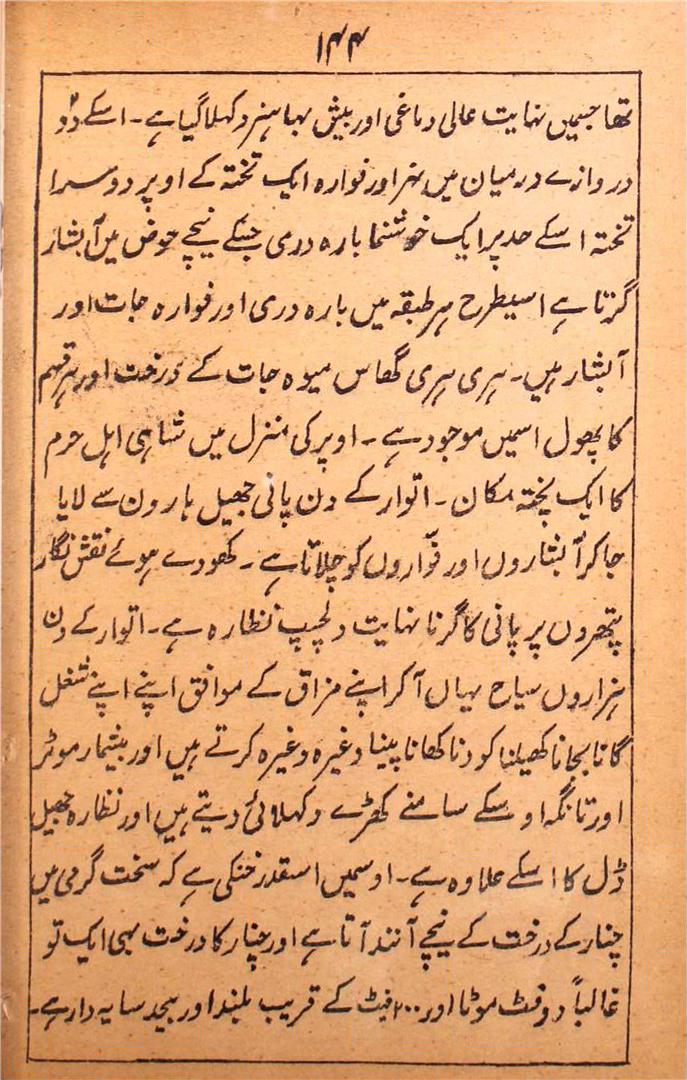 ۱۴۴
تھا جسمیں نہایت عالی دماغی اور بیش بہا ہنر دکھلا گیا ہے۔ اسکے دو
دروازے درمیان میں نہر اور فوارہ ایک تختہ کے اوپر دوسرا
تختہ اسکے حد پر ایک خوشنما بارہ دری جسکے نیچے حوض میں آبشار
گرتا ہے اسیطرح ہر طبقہ میں بارہ دری اور فوارہ جات اور
آبشار ہیں۔ ہری ہری گھاس میوہ جات کے درخت اور ہر قسم
کا پھول اسمیں موجود ہے۔ اوپر کی منزل میں شاہی اہل حرم
کا ایک پختہ مکان۔ اتوار کے دن پانی جھیل ہارون سے لایا
جا کر آبشاروں اور فوّاروں کو چلاتا ہے۔ کھودے ہوئے نقش نگار
پتھروں پر پانی کا گرنا نہایت دلچپ نظارہ ہے۔ اتوار کے دن
ہزاروں سیاح یہاں آ کر اپنے مزاق کے موافق اپنے اپنے شغل
گانا بجانا کھیلنا کودنا کھانا پینا وغیرہ وغیرہ کرتے ہیں اور بیشمار موٹر
اور تانگہ اوسکے سامنے کھڑے دکھلائی دیتے ہیں اور نظارہ جھیل
ڈل کا اسکے علاوہ ہے۔ اوسمیں اسقدر خنکی ہے کہ سخت گرمی میں
چنار کے درخت کے نیچے آنند آتا ہے اور چنار کا درخت بھی ایک تو
غالباً دو فٹ موٹا اور ۲۰۰ فیٹ کے قریب بلند اور بیحد سایہ دار ہے۔